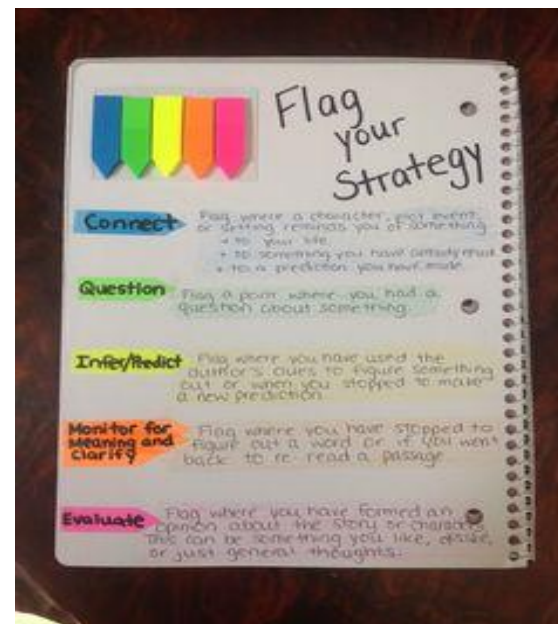 Flag
your
Strategy
Connect
Flag where a character, plot event,
or setting reminds you of something
+ to your life
+ to something you have already read
+ to a prediction you have made
Question
Flag a point where you had a
question about something.
Infer/Predict
Flag where you have used the
author's clues to figure something
out or when you stopped to make
a new prediction
Monitor for
Meaning and
Clarify
Flag where you have stopped to
figure out a word or if you went
back to re-read a passage
Evaluate
Flag where you have formed an
opinion about the story or characters.
This can be something you like, dislike,
or just general thoughts.